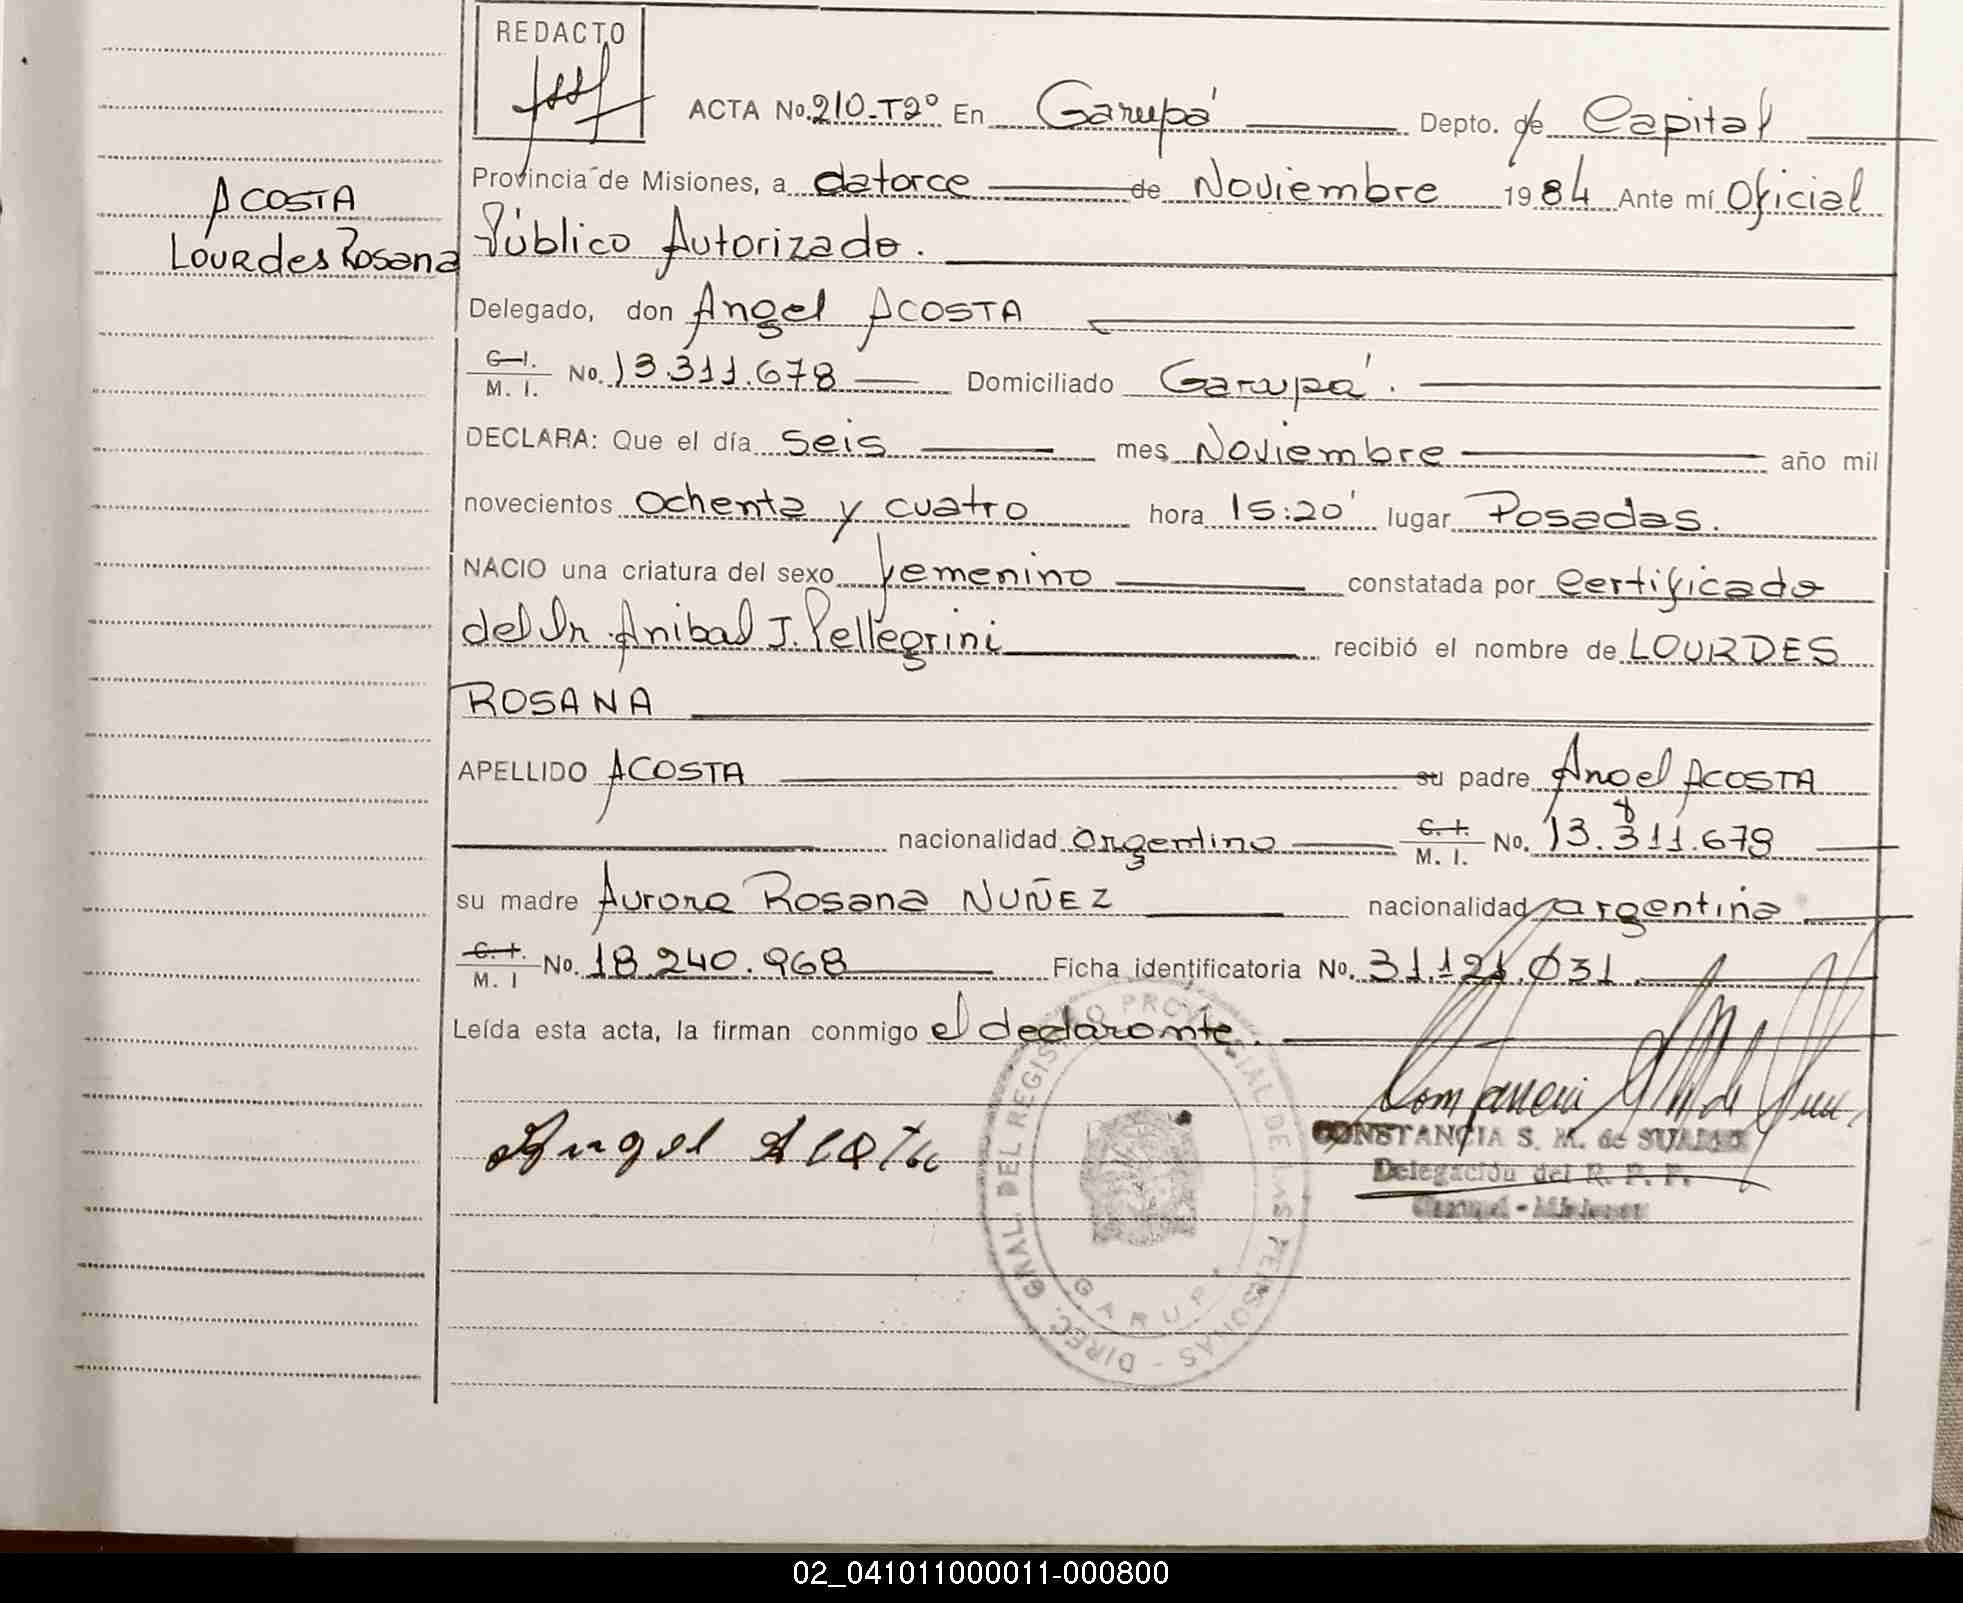 REDACTO
ACTA No. 210-T2º En Garupá Depto. de Capital
Provincia de Misiones, a catorce de Noviembre 1984 Ante mí Oficial
ACOSTA
Lourdes Rosana
Público Autorizado.
Delegado, don Angel ACOSTA
C. I.
M. I. No. 13.311.678 Domiciliado Garupá.
DECLARA: Que el día seis mes Noviembre año mil
novecientos ochenta y cuatro hora 15:20' lugar Posadas.
NACIO una criatura del sexo femenino constatada por Certificado
del Dr. Anibal J. Pellegrini recibió el nombre de LOURDES
ROSANA
APELLIDO ACOSTA su padre Angel ACOSTA
nacionalidad Argentino C. I.
M. I. No. 13.311.678
su madre Aurora Rosana NUÑEZ nacionalidad argentina
C. I.
M. I No. 18.240.968 Ficha identificatoria No. 31.121.031
Leída esta acta, la firman conmigo el declarante.
Angel Acosta
CONSTANCIA S. M. de
Delegación del R. P. P.
Garupá - Misiones
DIREC. GRAL. DEL REGISTRO PROVINCIAL DE LAS PERSONAS -
GARUPA
02_041011000011-000800